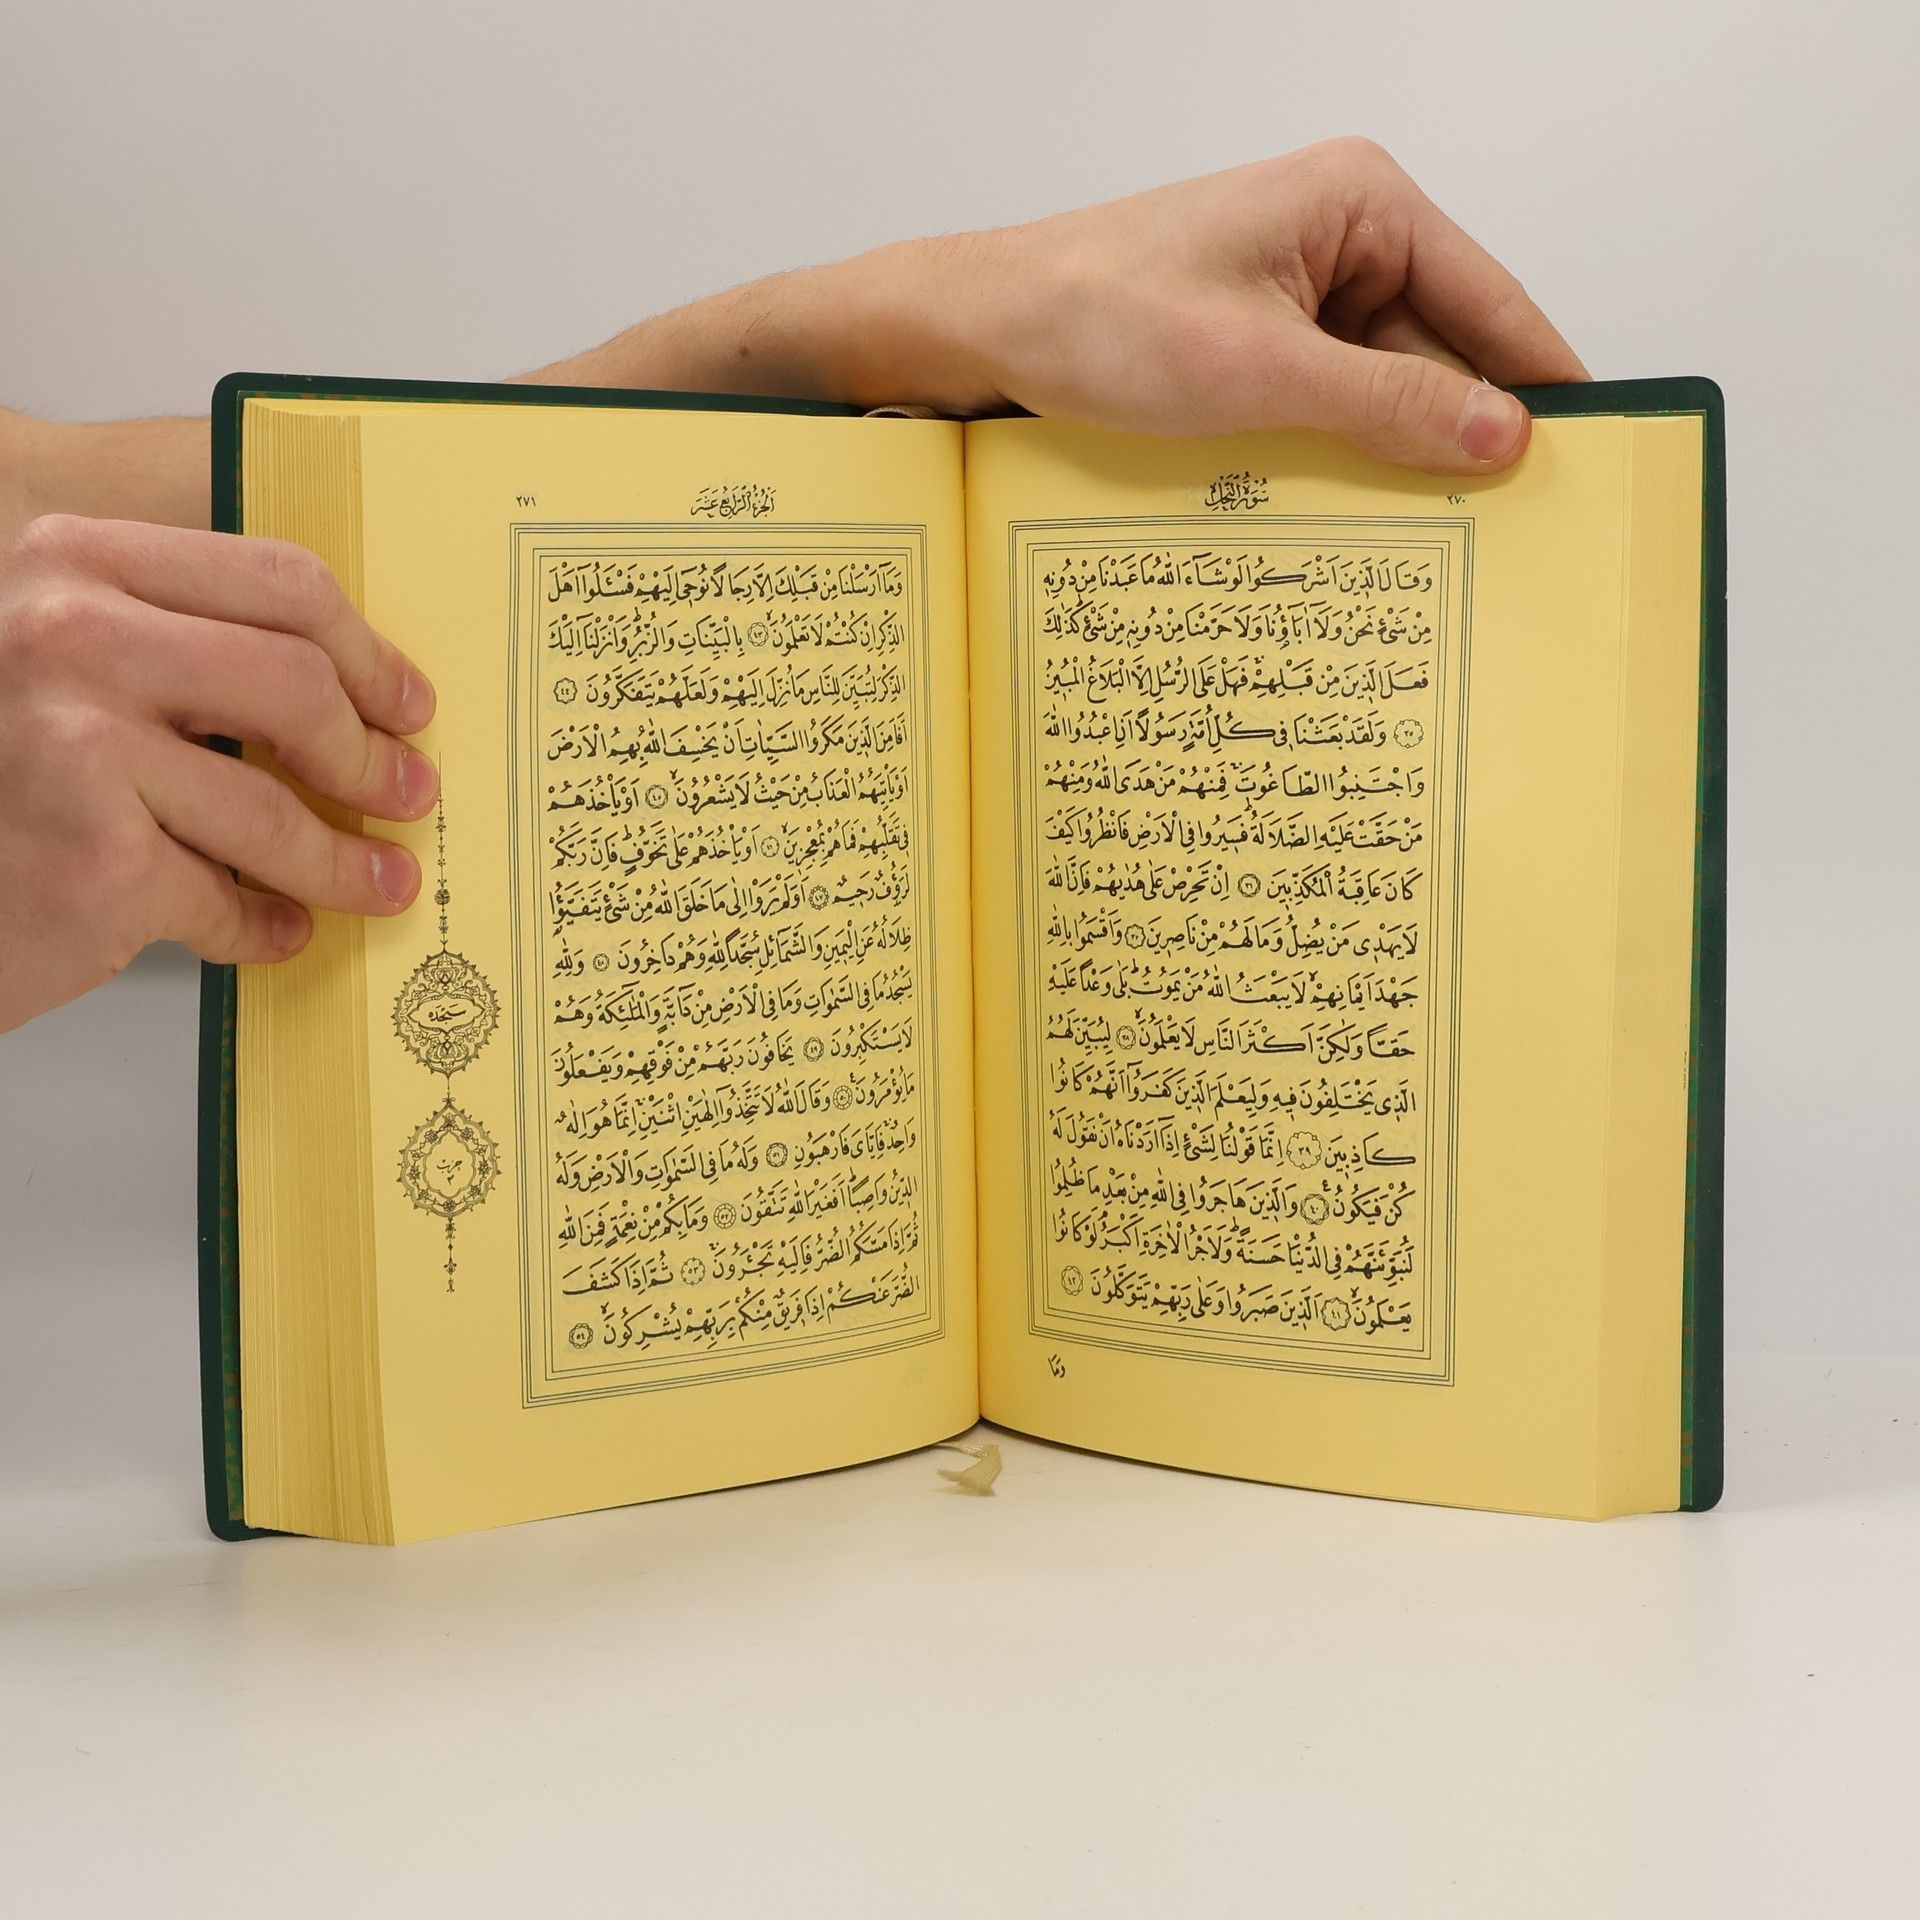 سُورَةُ النَّحْلِ
٢٧٠
وَقَالَ الَّذِينَ اَشْرَكُوا لَوْ شَاءَ اللّٰهُ مَا عَبَدْنَا مِنْ دُونِهِ
مِنْ شَيْءٍ نَحْنُ وَلَا اٰبَاؤُنَا وَلَا حَرَّمْنَا مِنْ دُونِهِ مِنْ شَيْءٍ كَذٰلِكَ
فَعَلَ الَّذِينَ مِنْ قَبْلِهِمْ فَهَلْ عَلَى الرُّسُلِ اِلَّا الْبَلَاغُ الْمُبِينُ
٣٥ وَلَقَدْ بَعَثْنَا فِي كُلِّ اُمَّةٍ رَسُولًا اَنِ اعْبُدُوا اللّٰهَ
وَاجْتَنِبُوا الطَّاغُوتَ فَمِنْهُمْ مَنْ هَدَى اللّٰهُ وَمِنْهُمْ
مَنْ حَقَّتْ عَلَيْهِ الضَّلَالَةُ فَسِيرُوا فِي الْاَرْضِ فَانْظُرُوا كَيْفَ
كَانَ عَاقِبَةُ الْمُكَذِّبِينَ ٣٦ اِنْ تَحْرِصْ عَلٰى هُدٰيهُمْ فَاِنَّ اللّٰهَ
لَا يَهْدِي مَنْ يُضِلُّ وَمَا لَهُمْ مِنْ نَاصِرِينَ ٣٧ وَاَقْسَمُوا بِاللّٰهِ
جَهْدَ اَيْمَانِهِمْ لَا يَبْعَثُ اللّٰهُ مَنْ يَمُوتُ بَلٰى وَعْدًا عَلَيْهِ
حَقًّا وَلٰكِنَّ اَكْثَرَ النَّاسِ لَا يَعْلَمُونَ ٣٨ لِيُبَيِّنَ لَهُمُ
الَّذِي يَخْتَلِفُونَ فِيهِ وَلِيَعْلَمَ الَّذِينَ كَفَرُوا اَنَّهُمْ كَانُوا
كَاذِبِينَ ٣٩ اِنَّمَا قَوْلُنَا لِشَيْءٍ اِذَا اَرَدْنَاهُ اَنْ نَقُولَ لَهُ
كُنْ فَيَكُونُ ٤٠ وَالَّذِينَ هَاجَرُوا فِي اللّٰهِ مِنْ بَعْدِ مَا ظُلِمُوا
لَنُبَوِّئَنَّهُمْ فِي الدُّنْيَا حَسَنَةً وَلَاَجْرُ الْاٰخِرَةِ اَكْبَرُ لَوْ كَانُوا
يَعْلَمُونَ ٤١ اَلَّذِينَ صَبَرُوا وَعَلٰى رَبِّهِمْ يَتَوَكَّلُونَ ٤٢
وَمَا
اَلْجُزْءُ الرَّابِعُ عَشَرَ
٢٧١
وَمَا اَرْسَلْنَا مِنْ قَبْلِكَ اِلَّا رِجَالًا نُوحِي اِلَيْهِمْ فَسْـَٔلُوا اَهْلَ
الذِّكْرِ اِنْ كُنْتُمْ لَا تَعْلَمُونَ ٤٣ بِالْبَيِّنَاتِ وَالزُّبُرِ وَاَنْزَلْنَا اِلَيْكَ
الذِّكْرَ لِتُبَيِّنَ لِلنَّاسِ مَا نُزِّلَ اِلَيْهِمْ وَلَعَلَّهُمْ يَتَفَكَّرُونَ ٤٤
اَفَاَمِنَ الَّذِينَ مَكَرُوا السَّيِّـَٔاتِ اَنْ يَخْسِفَ اللّٰهُ بِهِمُ الْاَرْضَ
اَوْ يَاْتِيَهُمُ الْعَذَابُ مِنْ حَيْثُ لَا يَشْعُرُونَ ٤٥ اَوْ يَاْخُذَهُمْ
فِي تَقَلُّبِهِمْ فَمَا هُمْ بِمُعْجِزِينَ ٤٦ اَوْ يَاْخُذَهُمْ عَلٰى تَخَوُّفٍ فَاِنَّ رَبَّكُمْ
لَرَؤُفٌ رَحِيمٌ ٤٧ اَوَلَمْ يَرَوْا اِلٰى مَا خَلَقَ اللّٰهُ مِنْ شَيْءٍ يَتَفَيَّؤُا
ظِلَالُهُ عَنِ الْيَمِينِ وَالشَّمَائِلِ سُجَّدًا لِلّٰهِ وَهُمْ دَاخِرُونَ ٤٨ وَلِلّٰهِ
يَسْجُدُ مَا فِي السَّمٰوَاتِ وَمَا فِي الْاَرْضِ مِنْ دَابَّةٍ وَالْمَلٰئِكَةُ وَهُمْ
لَا يَسْتَكْبِرُونَ ٤٩ يَخَافُونَ رَبَّهُمْ مِنْ فَوْقِهِمْ وَيَفْعَلُونَ
مَا يُؤْمَرُونَ ٥٠ وَقَالَ اللّٰهُ لَا تَتَّخِذُوا اِلٰهَيْنِ اثْنَيْنِ اِنَّمَا هُوَ اِلٰهٌ
وَاحِدٌ فَاِيَّايَ فَارْهَبُونِ ٥١ وَلَهُ مَا فِي السَّمٰوَاتِ وَالْاَرْضِ وَلَهُ
الدِّينُ وَاصِبًا اَفَغَيْرَ اللّٰهِ تَتَّقُونَ ٥٢ وَمَا بِكُمْ مِنْ نِعْمَةٍ فَمِنَ اللّٰهِ
ثُمَّ اِذَا مَسَّكُمُ الضُّرُّ فَاِلَيْهِ تَجْـَٔرُونَ ٥٣ ثُمَّ اِذَا كَشَفَ
الضُّرَّ عَنْكُمْ اِذَا فَرِيقٌ مِنْكُمْ بِرَبِّهِمْ يُشْرِكُونَ ٥٤
سجده
حزب
٢